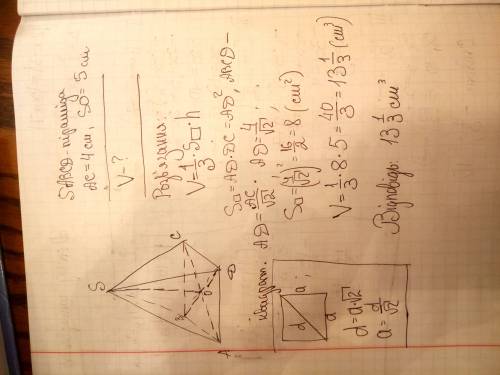 SABCD-піраміда
AC=4 см, SO=5 см
V-?
Розв'язання:
V=1/3·S□·h
S□=AD·DC=AD², ABCD-
квадрат. AD=AC/√2. AD=4/√2;
S□=(4/√2)²=16/2=8 (см²)
V=1/3·8·5=40/3=13 1/3 (см³)
Відповідь: 13 1/3 см³
S
C
B
O
A
D
d
a
;
a
d=a√2
a=d/√2